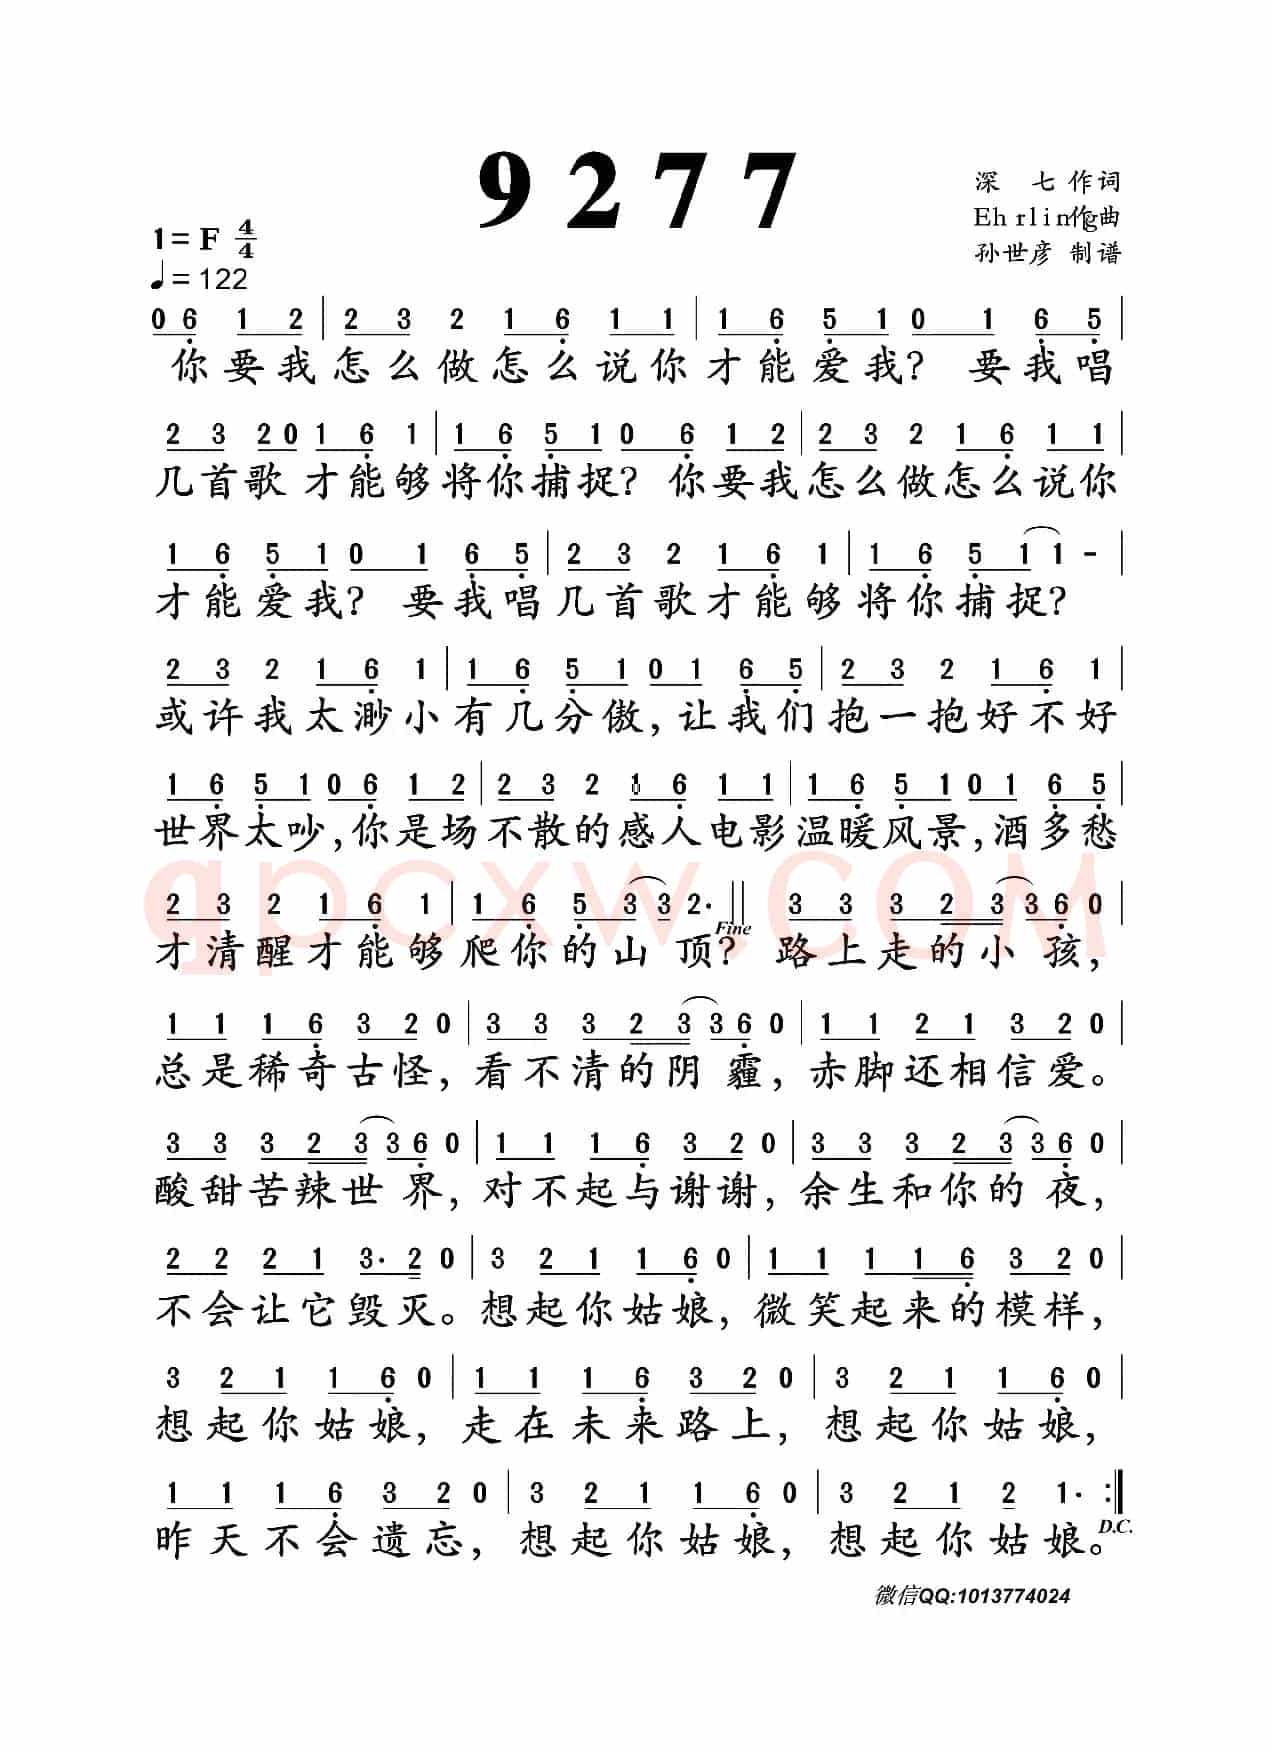 9277
深 七 作词
Ehrling作曲
孙世彦 制谱
1=F 4/4
♩=122
0 6 1 2 | 2 3 2 1 6 1 1 | 1 6 5 1 0 1 6 5 |
你要我怎么做怎么说你才能爱我? 要我唱
2 3 2 0 1 6 1 | 1 6 5 1 0 6 1 2 | 2 3 2 1 6 1 1 |
几首歌 才能够将你捕捉? 你要我怎么做怎么说你
1 6 5 1 0 1 6 5 | 2 3 2 1 6 1 | 1 6 5 1 1 - |
才能爱我? 要我唱几首歌才能够将你捕捉?
2 3 2 1 6 1 | 1 6 5 1 0 1 6 5 | 2 3 2 1 6 1 |
或许我太渺小有几分傲,让我们抱一抱好不好
1 6 5 1 0 6 1 2 | 2 3 2 1 6 1 1 | 1 6 5 1 0 1 6 5 |
世界太吵,你是场不散的感人电影温暖风景,酒多愁
qpcxw.COM
2 3 2 1 6 1 | 1 6 5 3 3 2· || 3 3 3 2 3 3 6 0 |
Fine
才清醒才能够爬你的山 顶? 路上走的小 孩,
1 1 1 6 3 2 0 | 3 3 3 2 3 3 6 0 | 1 1 2 1 3 2 0 |
总是稀奇古怪,看不清的阴 霾,赤脚还相信爱。
3 3 3 2 3 3 6 0 | 1 1 1 6 3 2 0 | 3 3 3 2 3 3 6 0 |
酸甜苦辣世 界,对不起与谢谢,余生和你的 夜,
2 2 2 1 3· 2 0 | 3 2 1 1 6 0 | 1 1 1 1 6 3 2 0 |
不会让它毁灭。想起你姑娘,微笑起来的模样,
3 2 1 1 6 0 | 1 1 1 6 3 2 0 | 3 2 1 1 6 0 |
想起你姑娘,走在未来路上,想起你姑娘,
1 1 1 6 3 2 0 | 3 2 1 1 6 0 | 3 2 1 2 1· :|
D.C.
昨天不会遗忘,想起你姑娘,想起你姑娘。
微信QQ:1013774024